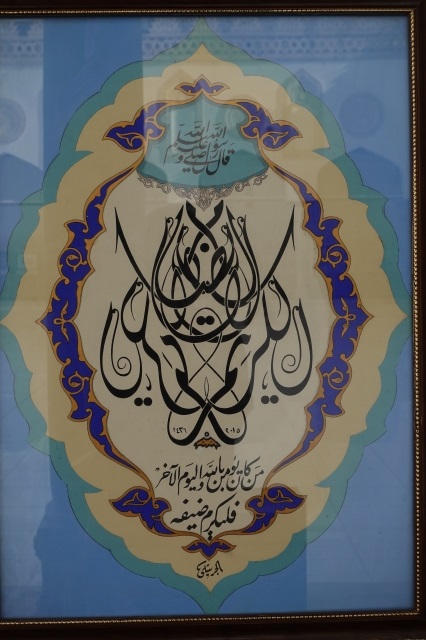 قال رسول الله صلى الله عليه وسلم
١٤٣٦ ٢٠١٥
من كان يؤمن بالله واليوم الآخر
فليكرم ضيفه